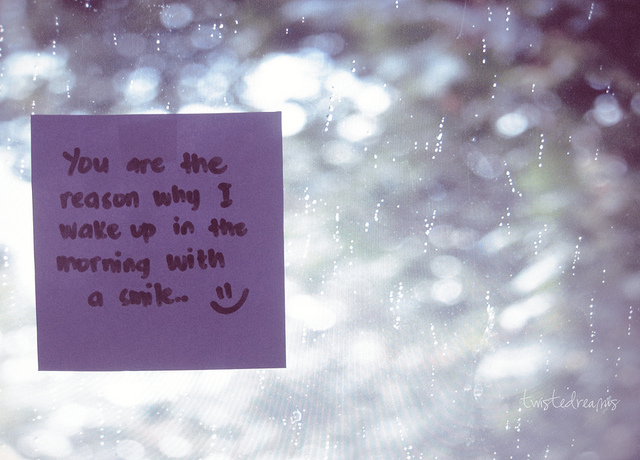 You are the
reason why I
wake up in the
morning with
a smile..
twistedreams